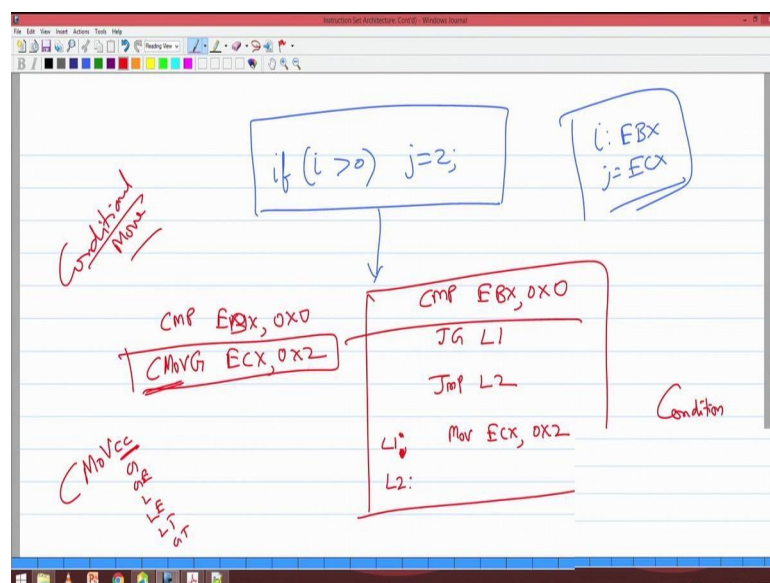 Instruction Set Architecture, Cont'd - Windows Journal
File Edit View Insert Actions Tools Help
Reading View
B I
if (i >0) j=2;
i: EBX
j= ECX
Conditional
Move
CMP EBX, 0X0
CMOVG ECX, 0X2
CMP EBX, 0X0
JG L1
Jmp L2
L1: Mov ECX, 0X2
L2:
Condition
CMOVCC
G
GE
L
LE
LT
GT